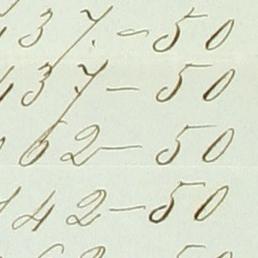 37 - 50
37 - 50
62 - 50
142 - 50